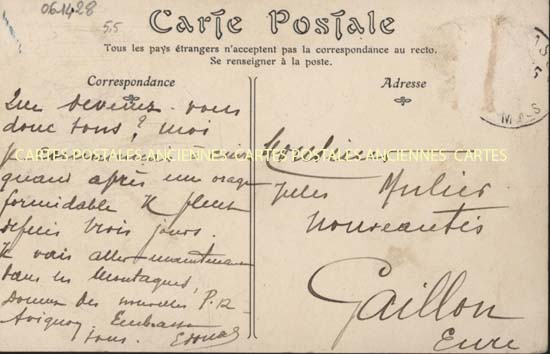 061428
5,5
Carte Postale
Tous les pays étrangers n'acceptent pas la correspondance au recto.
Se renseigner à la poste.
Correspondance
Adresse
Que devenez-vous
donc tous? moi
CARTES POSTALES ANCIENNES CARTES POSTALES ANCIENNES CARTES
quand après un orage
formidable il pleut
depuis trois jours.
Je vais aller maintenant
dans les Montagnes,
Donnez des nouvelles P.R
Avignon Embrasse
tous.
Jules Mulier
Nouveautés
Gaillon
Eure